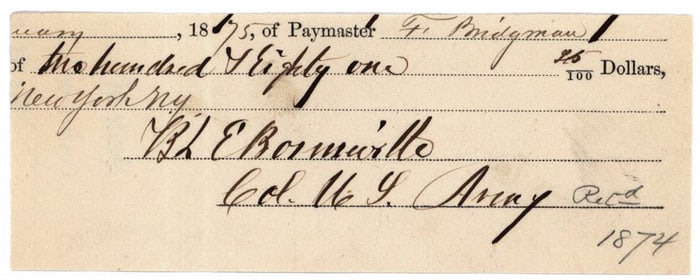 uary, 1875, of Paymaster F. Bridgman
of two hundred & Eighty one 25/100 Dollars,
New York Ny
B L E Bonneville
Col. U. S. Army Retd
1874